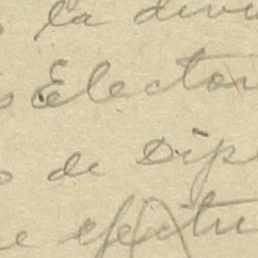 la divi
Elector
o de Dip
e efectu